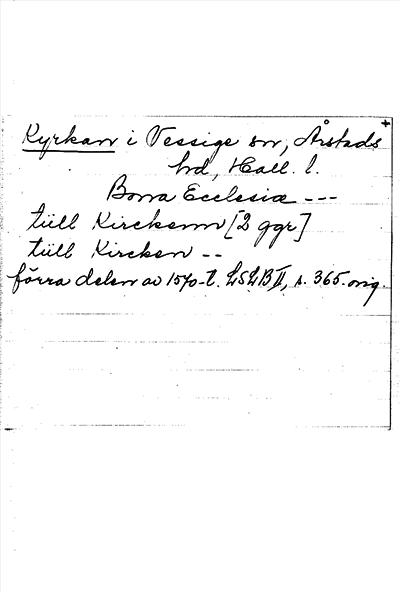 Kyrkan i Vessige sn, Årstads
hd, Hall. l.
Bona Ecclesiæ ---
tüll Kirckenn [2 ggr]
tüll Kircken --
förra delen av 1570-t. LSLB II, s. 365. orig.